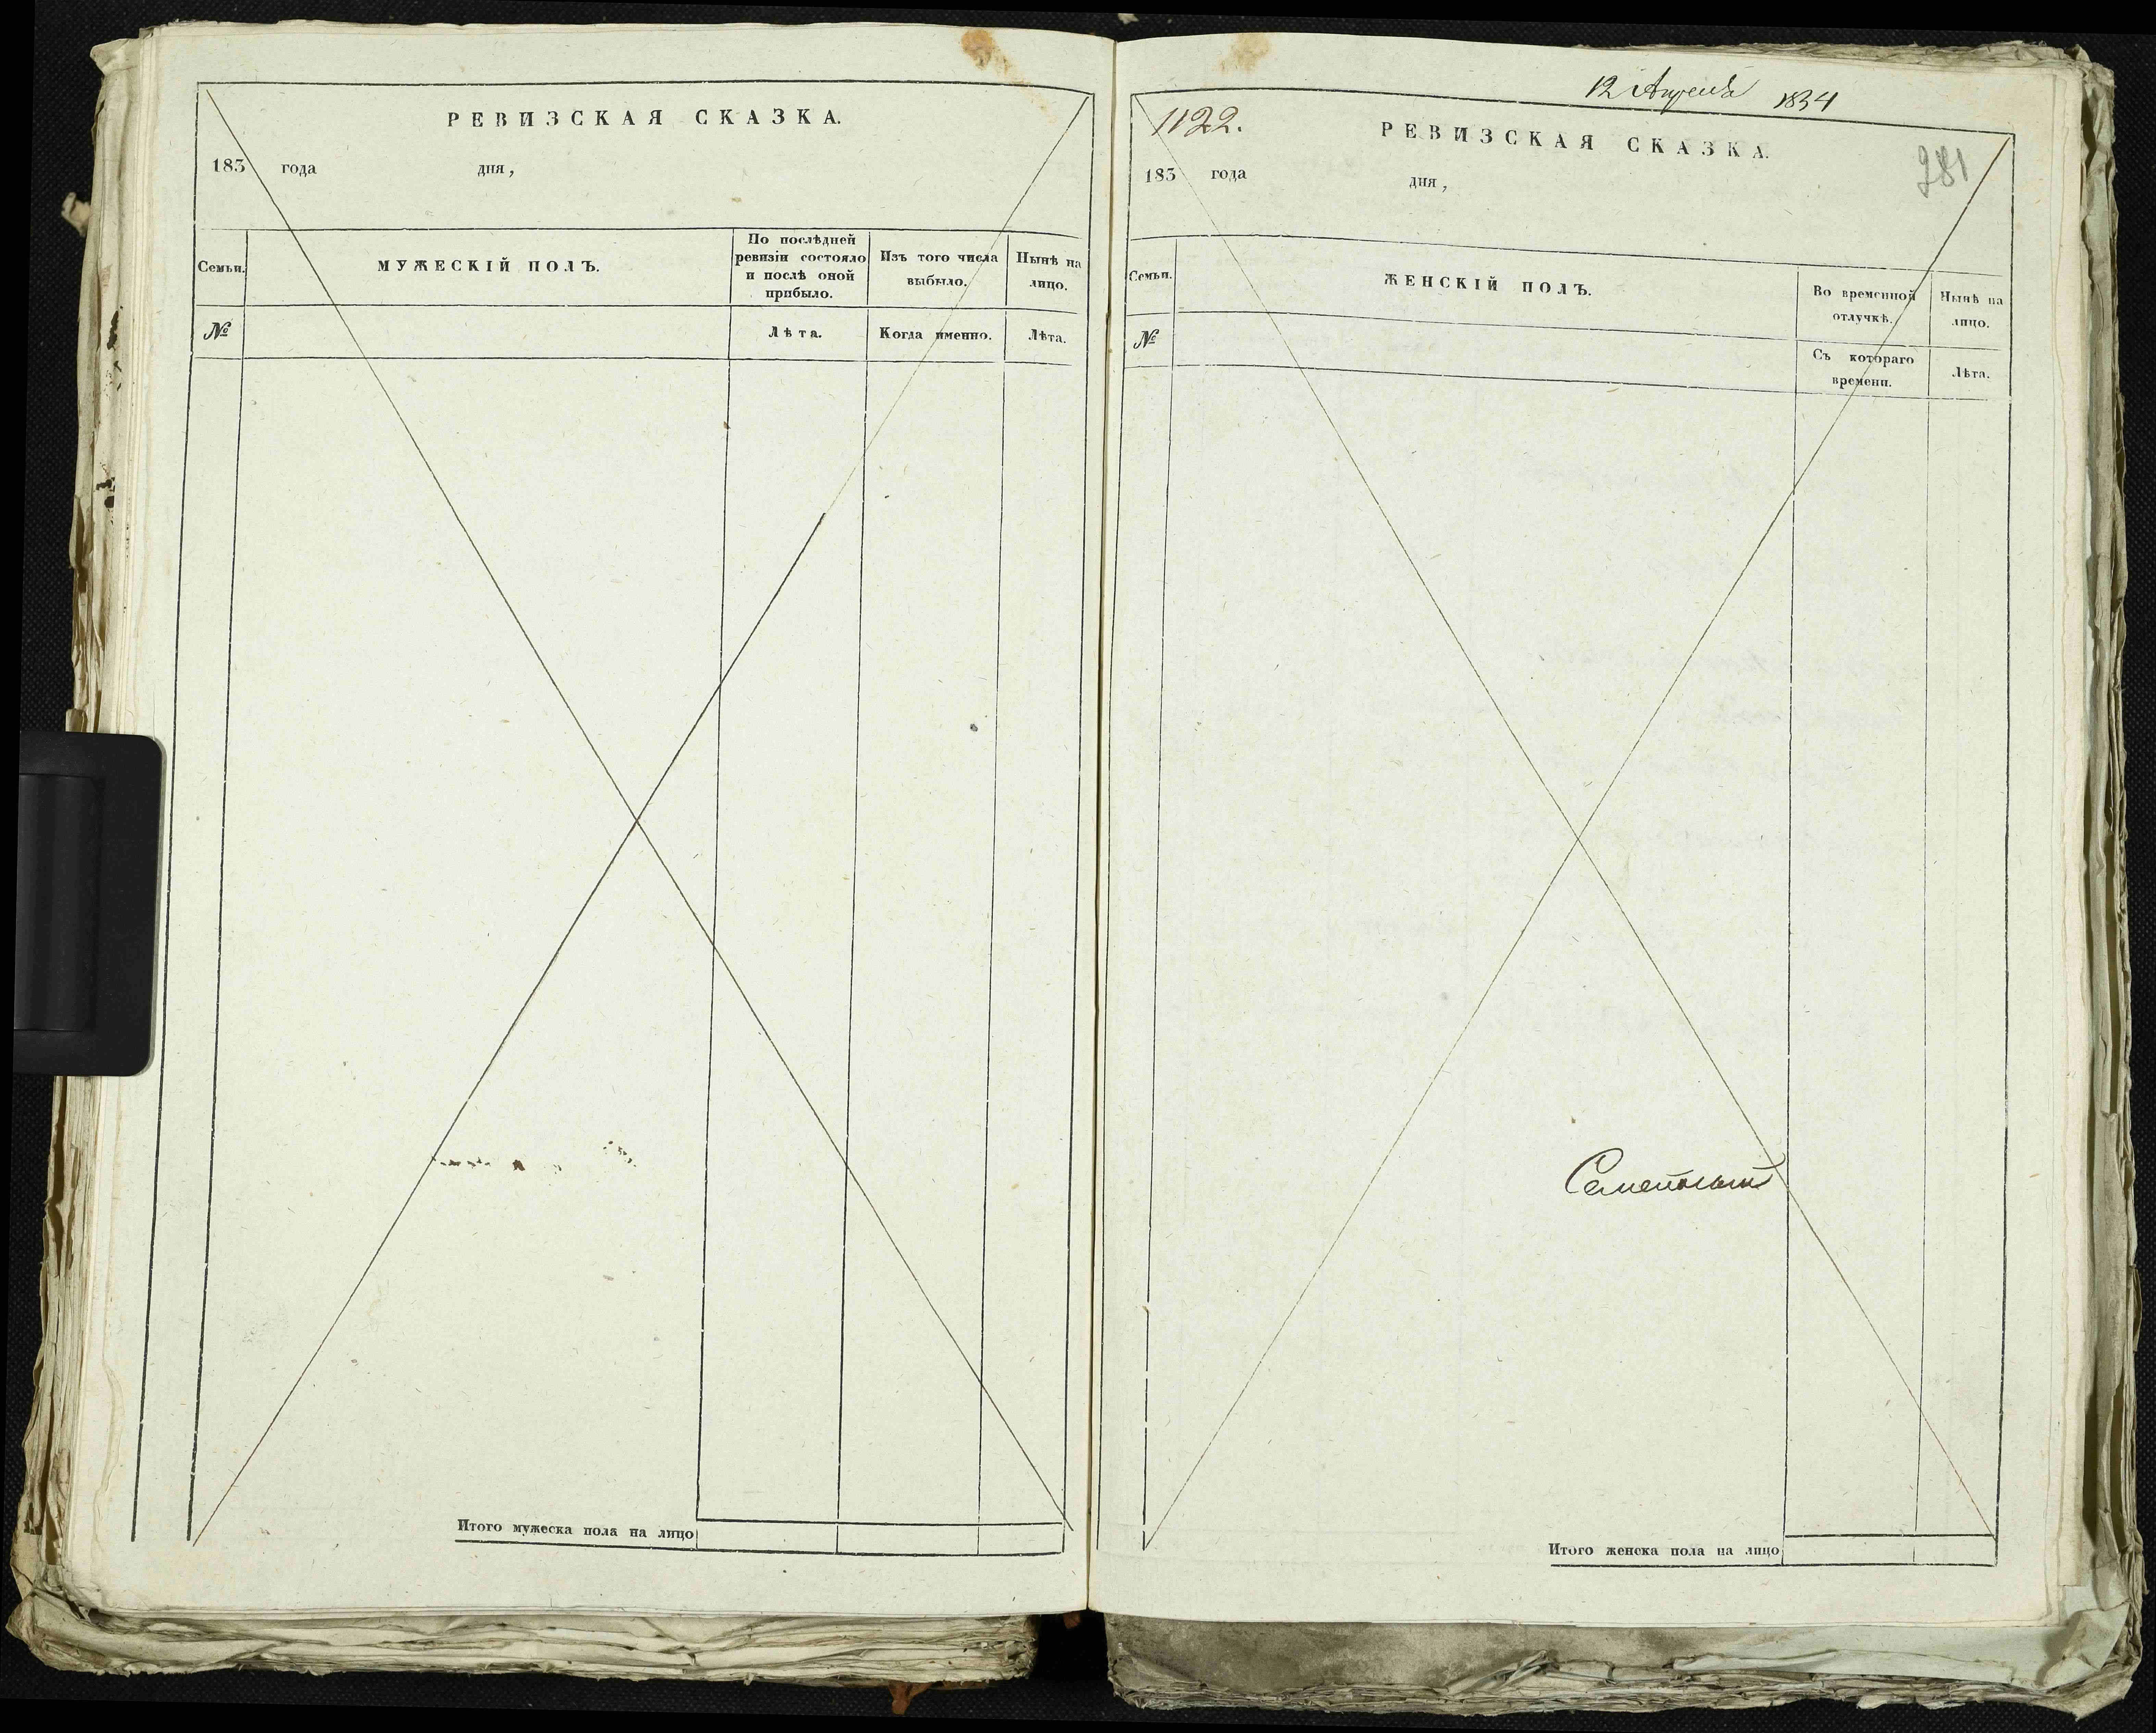 РЕВИЗСКАЯ СКАЗКА.
183 года дня,
Семьи.
МУЖЕСКІЙ ПОЛЪ.
По послѣдней
ревизіи состояло
и послѣ оной
прибыло.
Изъ того числа
выбыло.
Нынѣ на
лицо.
№
Лѣта.
Когда именно.
Лѣта.
Итого мужеска пола на лицо
12 Апреля 1834
1122.
РЕВИЗСКАЯ СКАЗКА.
281
183 года дня,
Семьи.
ЖЕНСКІЙ ПОЛЪ.
Во временной
отлучкѣ.
Нынѣ на
лицо.
№
Съ котораго
времени.
Лѣта.
Итого женска пола на лицо